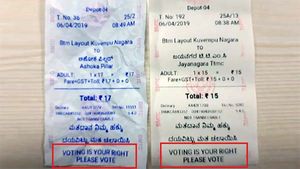 Depot 04
T. No. 36 25/2
06/04/2019 08:49 AM
Btm Layout Kuvempu Nagara
TO
ಅಶೋಕ ಪಿಲ್ಲರ್
Ashoka Pillar
ADULT: 1 x 17 = ₹17
Fare+GST=Total: ₹17 + 0 + 0
Total: ₹ 17
NOT TRANSFERABLE
ಮತದಾನ ನಿಮ್ಮ ಹಕ್ಕು
ದಯವಿಟ್ಟು ಮತ ಚಲಾಯಿಸಿ
VOTING IS YOUR RIGHT
PLEASE VOTE
Depot 04
T. No 192 25A/13
06/04/2019 08:38 AM
Btm Layout Kuvempu Nagara
TO
ಜಯನಗರ ಟಿ.ಟಿ.ಎಂ.ಸಿ
Jayanagara Ttmc
ADULT: 1 x 15 = ₹15
Fare+GST=Total: ₹15 + 0 + 0
Total: ₹ 15
NOT TRANSFERABLE
ಮತದಾನ ನಿಮ್ಮ ಹಕ್ಕು
ದಯವಿಟ್ಟು ಮತ ಚಲಾಯಿಸಿ
VOTING IS YOUR RIGHT
PLEASE VOTE